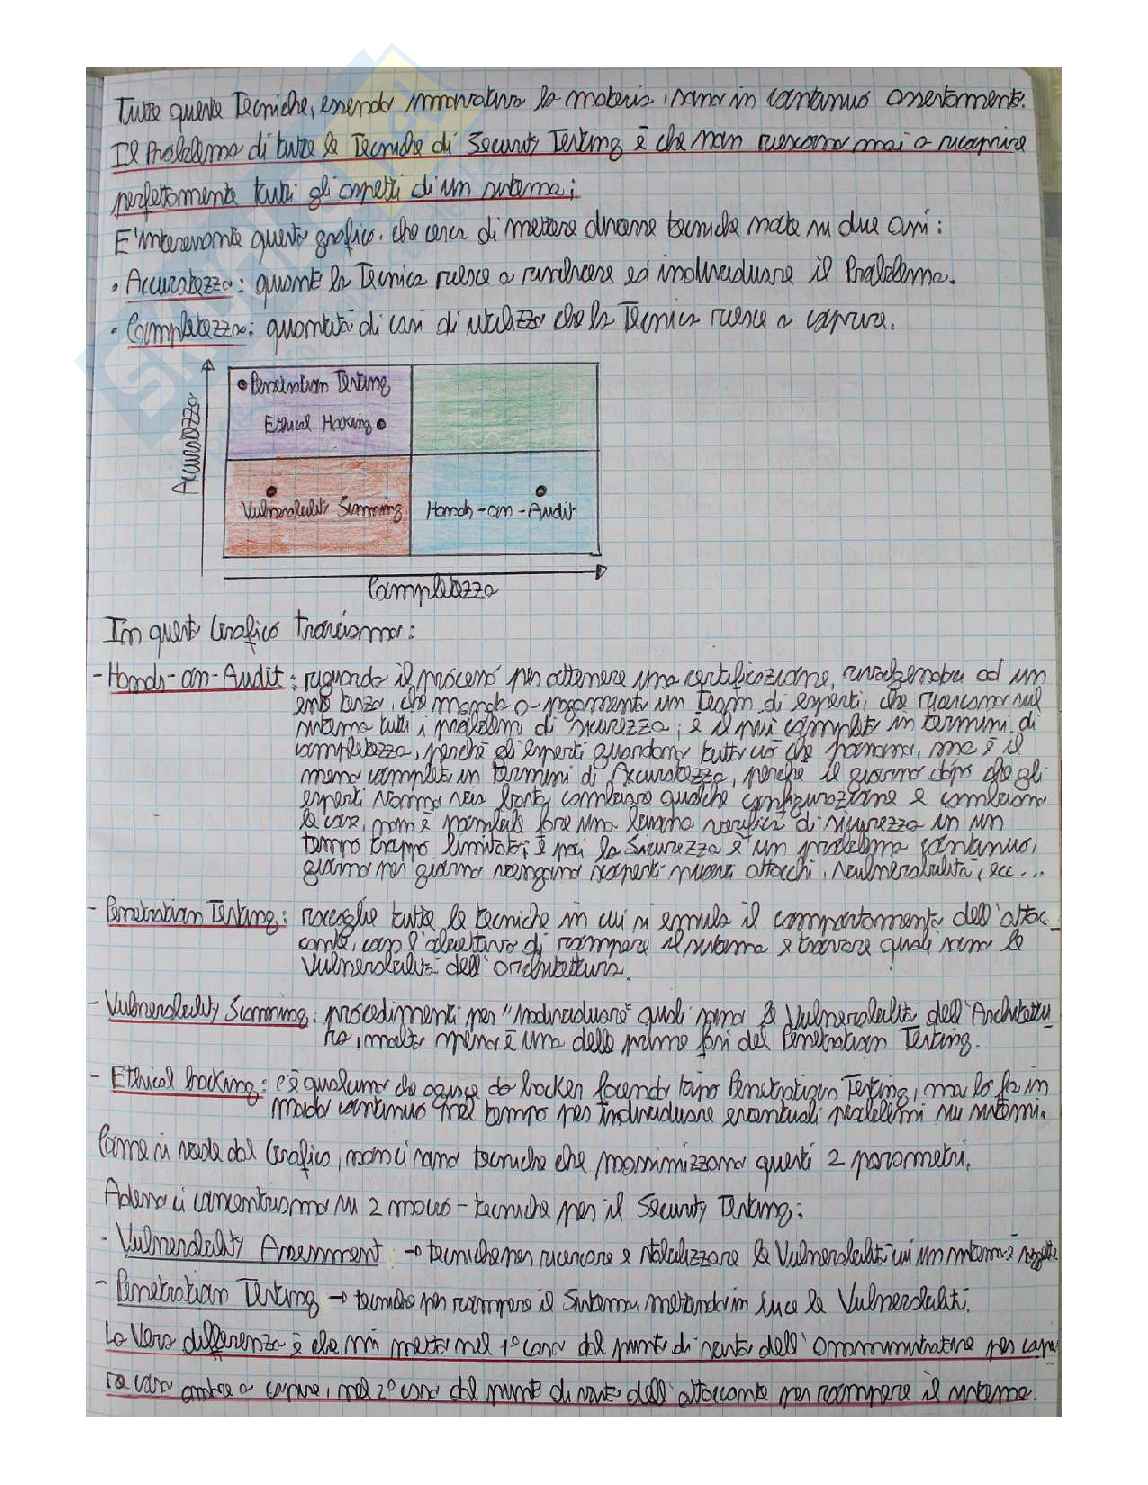 Tutte queste Tecniche, essendo innovativa la materia, sono in continuo assestamento.
Il Problema di tutte le Tecniche di Security Testing è che non riescono mai a ricoprire
perfettamente tutti gli aspetti di un sistema;
E' interessante questo grafico, che cerca di mettere diverse tecniche note su due assi:
• Accuratezza: quanto la Tecnica riesce a ed individuare il Problema.
• Completezza: quantità di casi di utilizzo che la Tecnica riesce a coprire.
• Penetration Testing
Ethical Hacking •
Accuratezza
Vulnerability Scanning
Hands-on-Audit
Completezza
In questo Grafico troviamo:
- Hands-on-Audit: riguarda il processo per ottenere una certificazione, rivolgendosi ad un
ente terzo, che manda a pagamento un Team di esperti, che ricercano sul
sistema tutti i problemi di sicurezza; è il più completo in termini di
completezza, perchè gli esperti guardano tutto ciò che possono, ma è il
meno completo in termini di Accuratezza, perchè il giorno dopo che gli
esperti vanno via basta cambiare qualche configurazione e cambiano
le cose, non è possibile fare una buona verifica di sicurezza in un
tempo troppo limitato, e poi la Sicurezza è un problema continuo,
giorno per giorno vengono scoperti nuovi attacchi, vulnerabilità, ecc...
- Penetration Testing: raccoglie tutte le tecniche in cui si emula il comportamento dell'attac-
cante, con l'obiettivo di rompere il sistema e trovare quali sono le
Vulnerabilità dell'architettura.
- Vulnerability Scanning: procedimenti per "Individuare" quali sono le Vulnerabilità dell'Architettu-
ra, molto spesso è una delle prime fasi del Penetration Testing.
- Ethical hacking: c'è qualcuno che agisce da hacker facendo tipo Penetration Testing, ma lo fa in
modo continuo nel tempo per individuare eventuali problemi su sistemi.
Come si vede dal Grafico, non ci sono tecniche che massimizzano questi 2 parametri.
Adesso ci concentriamo su 2 macro-tecniche per il Security Testing:
- Vulnerability Assessment: → tecniche per ricercare e stabilizzare le Vulnerabilità cui un sistema è soggetto.
- Penetration Testing → tecniche per rompere il Sistema mettendo in luce le Vulnerabilità.
La Vera differenza è che mi metto nel 1° caso dal punto di vista dell'amministratore per capi-
re cosa andare a coprire, nel 2° caso dal punto di vista dell'attaccante per rompere il sistema.